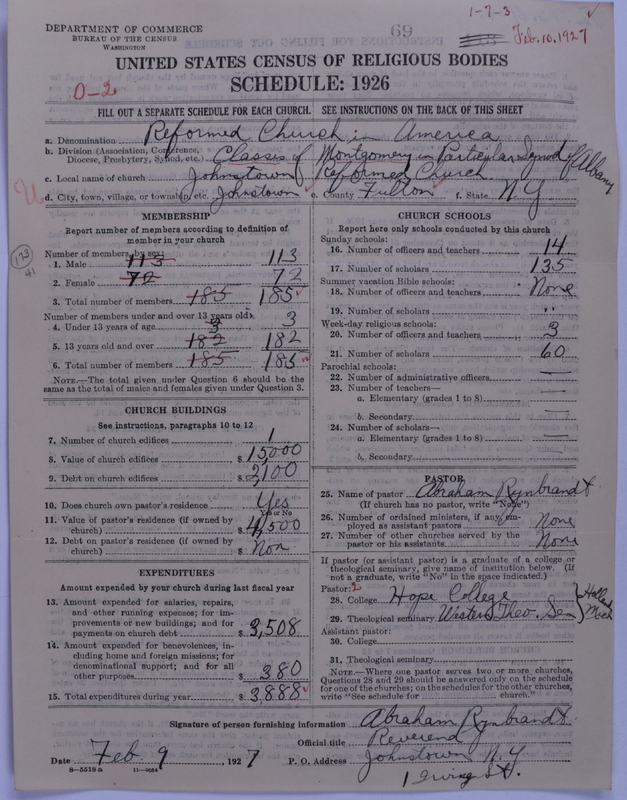 1-7-3
DEPARTMENT OF COMMERCE
BUREAU OF THE CENSUS
WASHINGTON
69
Feb. 10, 1927
UNITED STATES CENSUS OF RELIGIOUS BODIES
SCHEDULE: 1926
0-2
FILL OUT A SEPARATE SCHEDULE FOR EACH CHURCH. SEE INSTRUCTIONS ON THE BACK OF THIS SHEET
a. Denomination Reformed Church in America
b. Division (Association, Conference, Diocese, Presbytery, Synod, etc.) Classes of Montgomery in Particular Synod of Albany
c. Local name of church Johnstown Reformed Church
d. City, town, village, or township, etc. Johnstown e. County Fulton f. State N.Y.
MEMBERSHIP
Report number of members according to definition of
member in your church
Number of members by sex:
1. Male 113 113
2. Female 72 72
3. Total number of members 185 185
Number of members under and over 13 years old:
4. Under 13 years of age 3 3
5. 13 years old and over 182 182
6. Total number of members 185 185
NOTE.—The total given under Question 6 should be the
same as the total of males and females given under Question 3.
173
41
CHURCH BUILDINGS
See instructions, paragraphs 10 to 12
7. Number of church edifices 1
8. Value of church edifices $ 15,000
9. Debt on church edifices $ 2,100
10. Does church own pastor's residence Yes
Yes or No
11. Value of pastor's residence (if owned by
church) $ 4,500
12. Debt on pastor's residence (if owned by
church) $ Non
EXPENDITURES
Amount expended by your church during last fiscal year
13. Amount expended for salaries, repairs,
and other running expenses; for im-
provements or new buildings; and for
payments on church debt $ 3,508
14. Amount expended for benevolences, in-
cluding home and foreign missions; for
denominational support; and for all
other purposes $ 380
15. Total expenditures during year $ 3888
CHURCH SCHOOLS
Report here only schools conducted by this church
Sunday schools:
16. Number of officers and teachers 14
17. Number of scholars 135
Summer vacation Bible schools:
18. Number of officers and teachers None
19. Number of scholars "
Week-day religious schools:
20. Number of officers and teachers 3
21. Number of scholars 60
Parochial schools:
22. Number of administrative officers —
23. Number of teachers—
a. Elementary (grades 1 to 8) —
b. Secondary —
24. Number of scholars—
a. Elementary (grades 1 to 8) —
b. Secondary —
PASTOR
25. Name of pastor Abraham Rynbrandt
(If church has no pastor, write "None")
26. Number of ordained ministers, if any, em-
ployed as assistant pastors None
27. Number of other churches served by the
pastor or his assistants None
If pastor (or assistant pastor) is a graduate of a college or
theological seminary, give name of institution below. (If
not a graduate, write "No" in the space indicated.)
Pastor: 2
28. College Hope College
29. Theological seminary Western Theo. Sem } Holland Mich
Assistant pastor:
30. College
31. Theological seminary
NOTE.—Where one pastor serves two or more churches,
Questions 28 and 29 should be answered only on the schedule
for one of the churches; on the schedules for the other churches,
write "See schedule for church."
Signature of person furnishing information Abraham Rynbrandt
Official title Reverend
Date Feb. 9 1927 P. O. Address Johnstown N.Y.
1 Irving St.
8—5518 a 11—9054